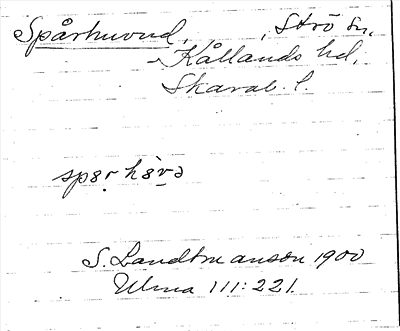 Spårhuvud, , Strö sn,
Kållands hd,
Skarab. l.
spǝr hǝvǝ
S. Landtmanson 1900
Ulma 111:221.